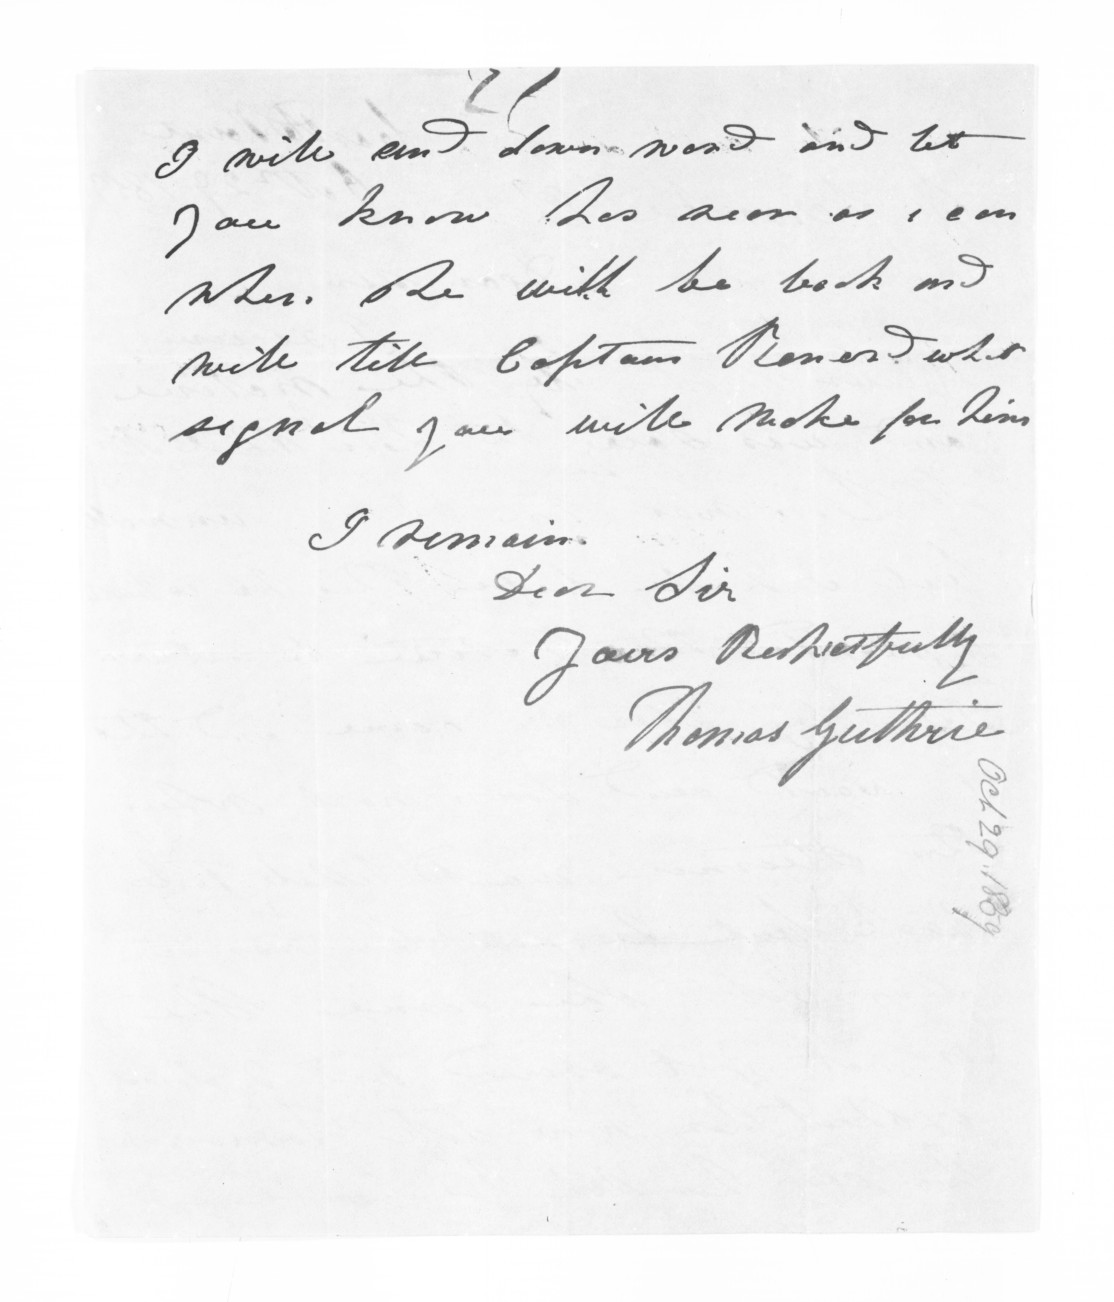 I will send down word and let
you know has soon as i can
when she will be back and
will till Captain what
signal you will make for him
I remain
Dear Sir
Yours Respectfully
Thomas Guthrie
Oct 29. 1869